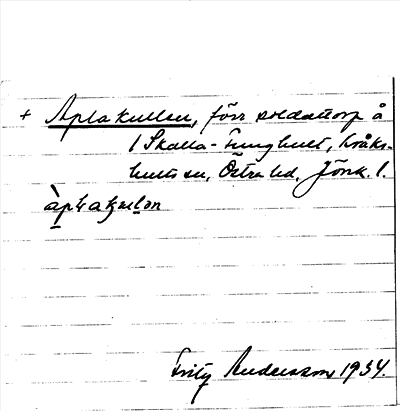 + Aplakullen, förr soldattorp å
1 Skalla-Ljunghult, Bråks-
hults sn, Östra hd, Jönk. l.
Fritz Andersson 1934.